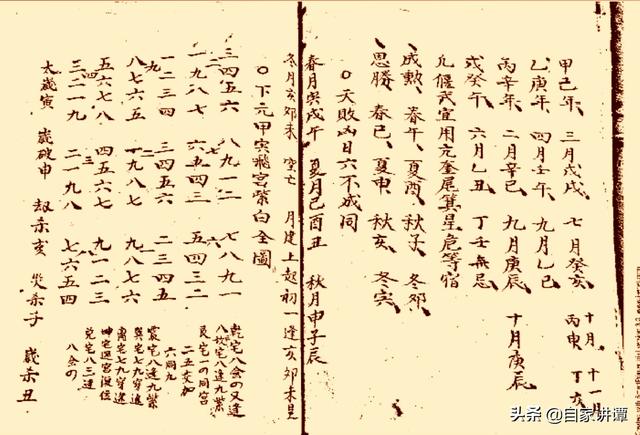 甲己年、三月戊戌、七月癸亥、十月丙申、十一月丁亥
乙庚年、四月壬午、九月乙巳
丙辛年、二月辛巳、九月庚辰、十月庚辰
戊癸年、六月乙丑 丁壬無忌
凡偃武宜用亢奎尾箕星危等宿
成勲、春午、夏酉、秋子、冬卯、
思勝、春巳、夏申、秋亥、冬寅、
〇天敗凶日六不成同
春月寅戌午 夏月巳酉丑 秋月申子辰
冬月亥卯未 空亡 月建上起初一逢亥卯未見
〇下元甲寅飛宮紫白全圖
三四五六 八九一二 七八九一
一九八七 六五四三 五四三二
一二三四 三四五六 二三四五
八七六五 一九八七 九八七六
五六七八 四五六七 九一二三
三二一九 二一九八 七六五四
乾宅八会の又逢
八坎宅八逢九紫
艮宅一の同宮
二五交加
六同九
震宅八逢九紫
巽宅七九穿逢
離宅七九穿途
坤宅迴宮復位
兌宅八三逢
八会の
太歲寅 歲破申 劫杀亥 災杀子 歲杀丑
头条 @自家讲谭